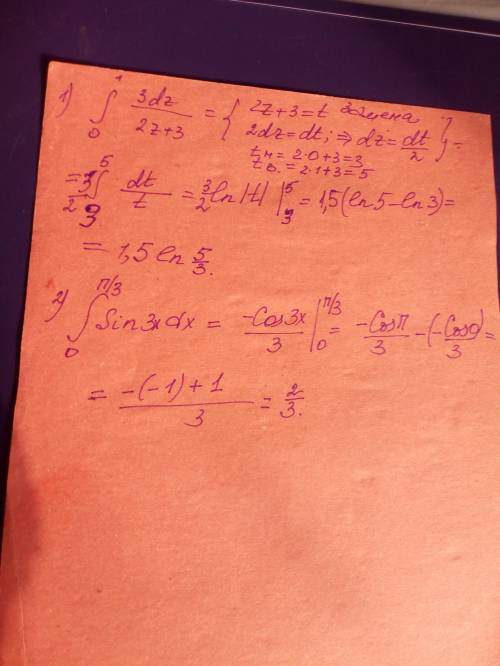 1) ∫₀¹ 3dz/(2z+3) = { 2z+3=t замена
2dz=dt; ⇒ dz=dt/2 } =
tн = 2·0+3=3
tв. = 2·1+3=5
= 3/2 ∫₃⁵ dt/t = 3/2 ln|t| |₃⁵ = 1,5(ln5-ln3)=
= 1,5 ln 5/3.
2) ∫₀^(π/3) Sin3xdx = -Cos3x/3 |₀^(π/3) = -Cosπ/3 - (-Cos0)/3 =
= (-(-1)+1)/3 = 2/3.